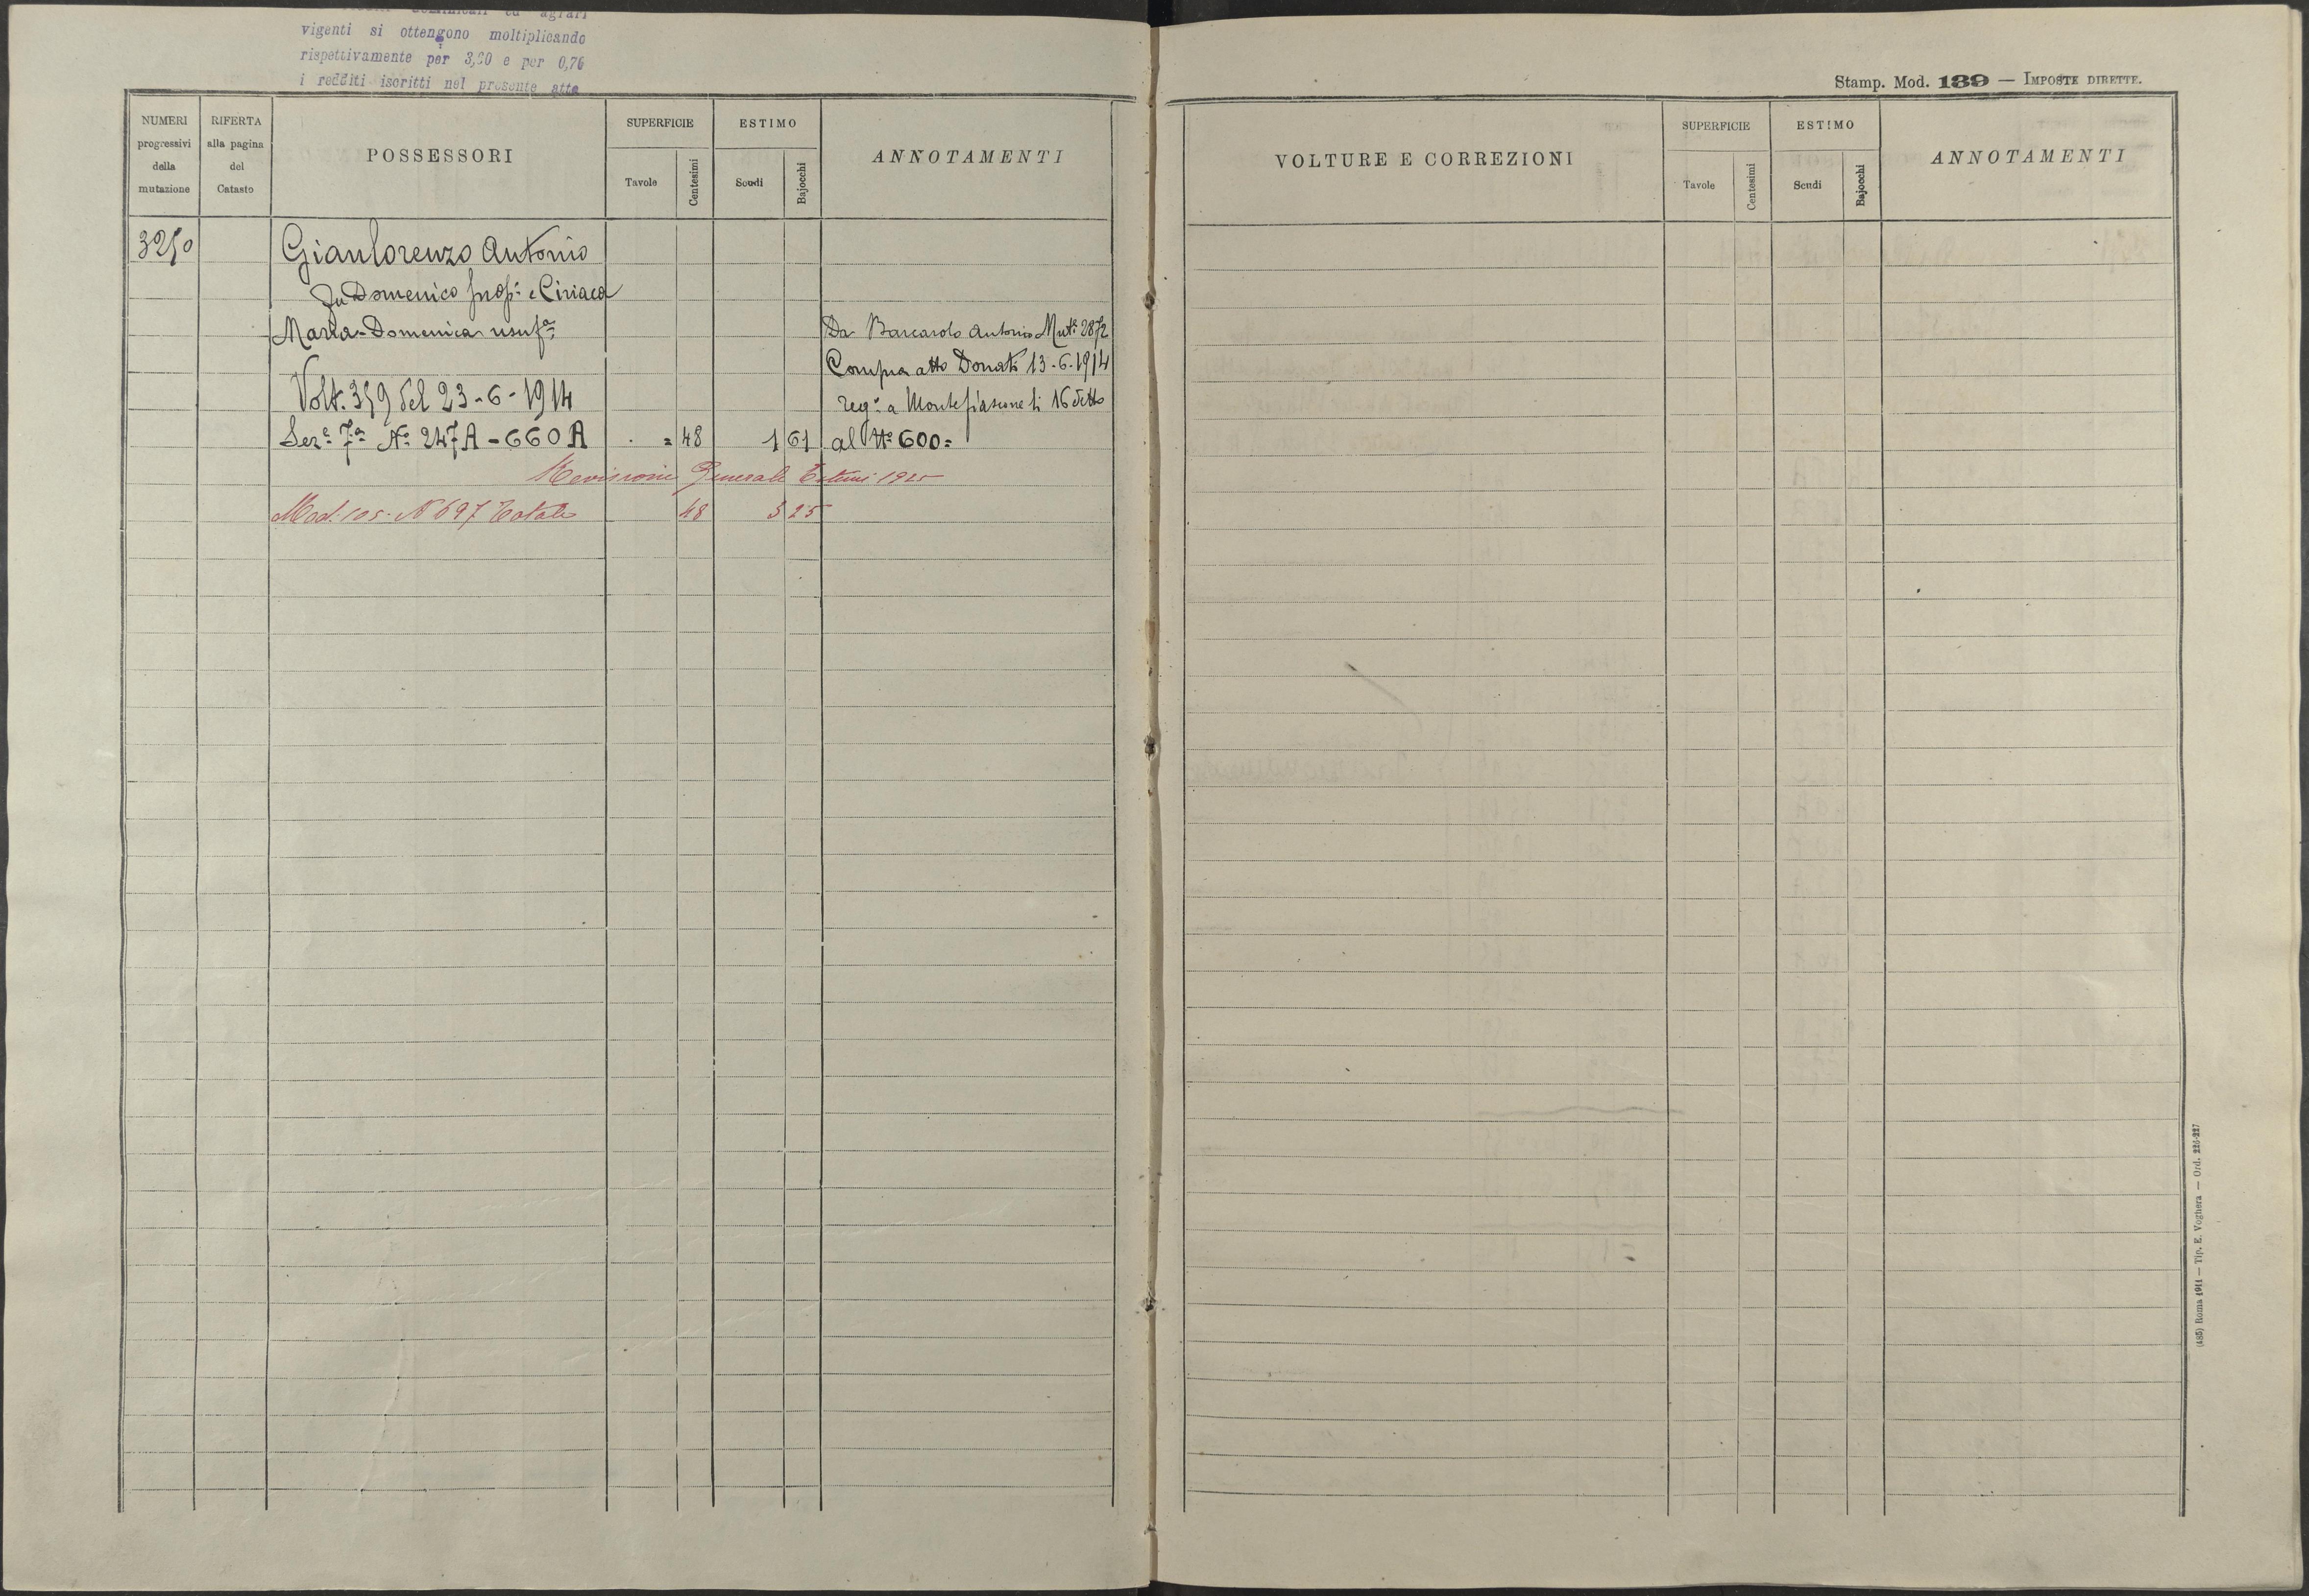 vigenti si ottengono moltiplicando
rispettivamente per 3,20 e per 0,76
i redditi iscritti nel presente atto
NUMERI progressivi della mutazione
RIFERTA alla pagina del Catasto
POSSESSORI
SUPERFICIE
Tavole
Centesimi
ESTIMO
Scudi
Bajocchi
ANNOTAMENTI
3250
Gianlorenzo Antonio
fu Domenico prop.e e Ciriaca
Maria-Domenica usuf.a Da Barcarolo Antonio Mut.e 2872
Compra atto Donati 13-6-1914
Volt. 359 del 23-6-1914 reg.o a Montefiascone li 16 detto
Sez.e 7.a N.o 247A - 660A . = 48 1 61 al N.o 600=
Revisione Generale Estimi 1925
Mod. 105 - N 697 Totale 48 3 25
Stamp. Mod. 139 — IMPOSTE DIRETTE.
VOLTURE E CORREZIONI
SUPERFICIE
Tavole
Centesimi
ESTIMO
Scudi
Bajocchi
ANNOTAMENTI
(485) Roma 1911 — Tip. E. Voghera — Ord. 226-227